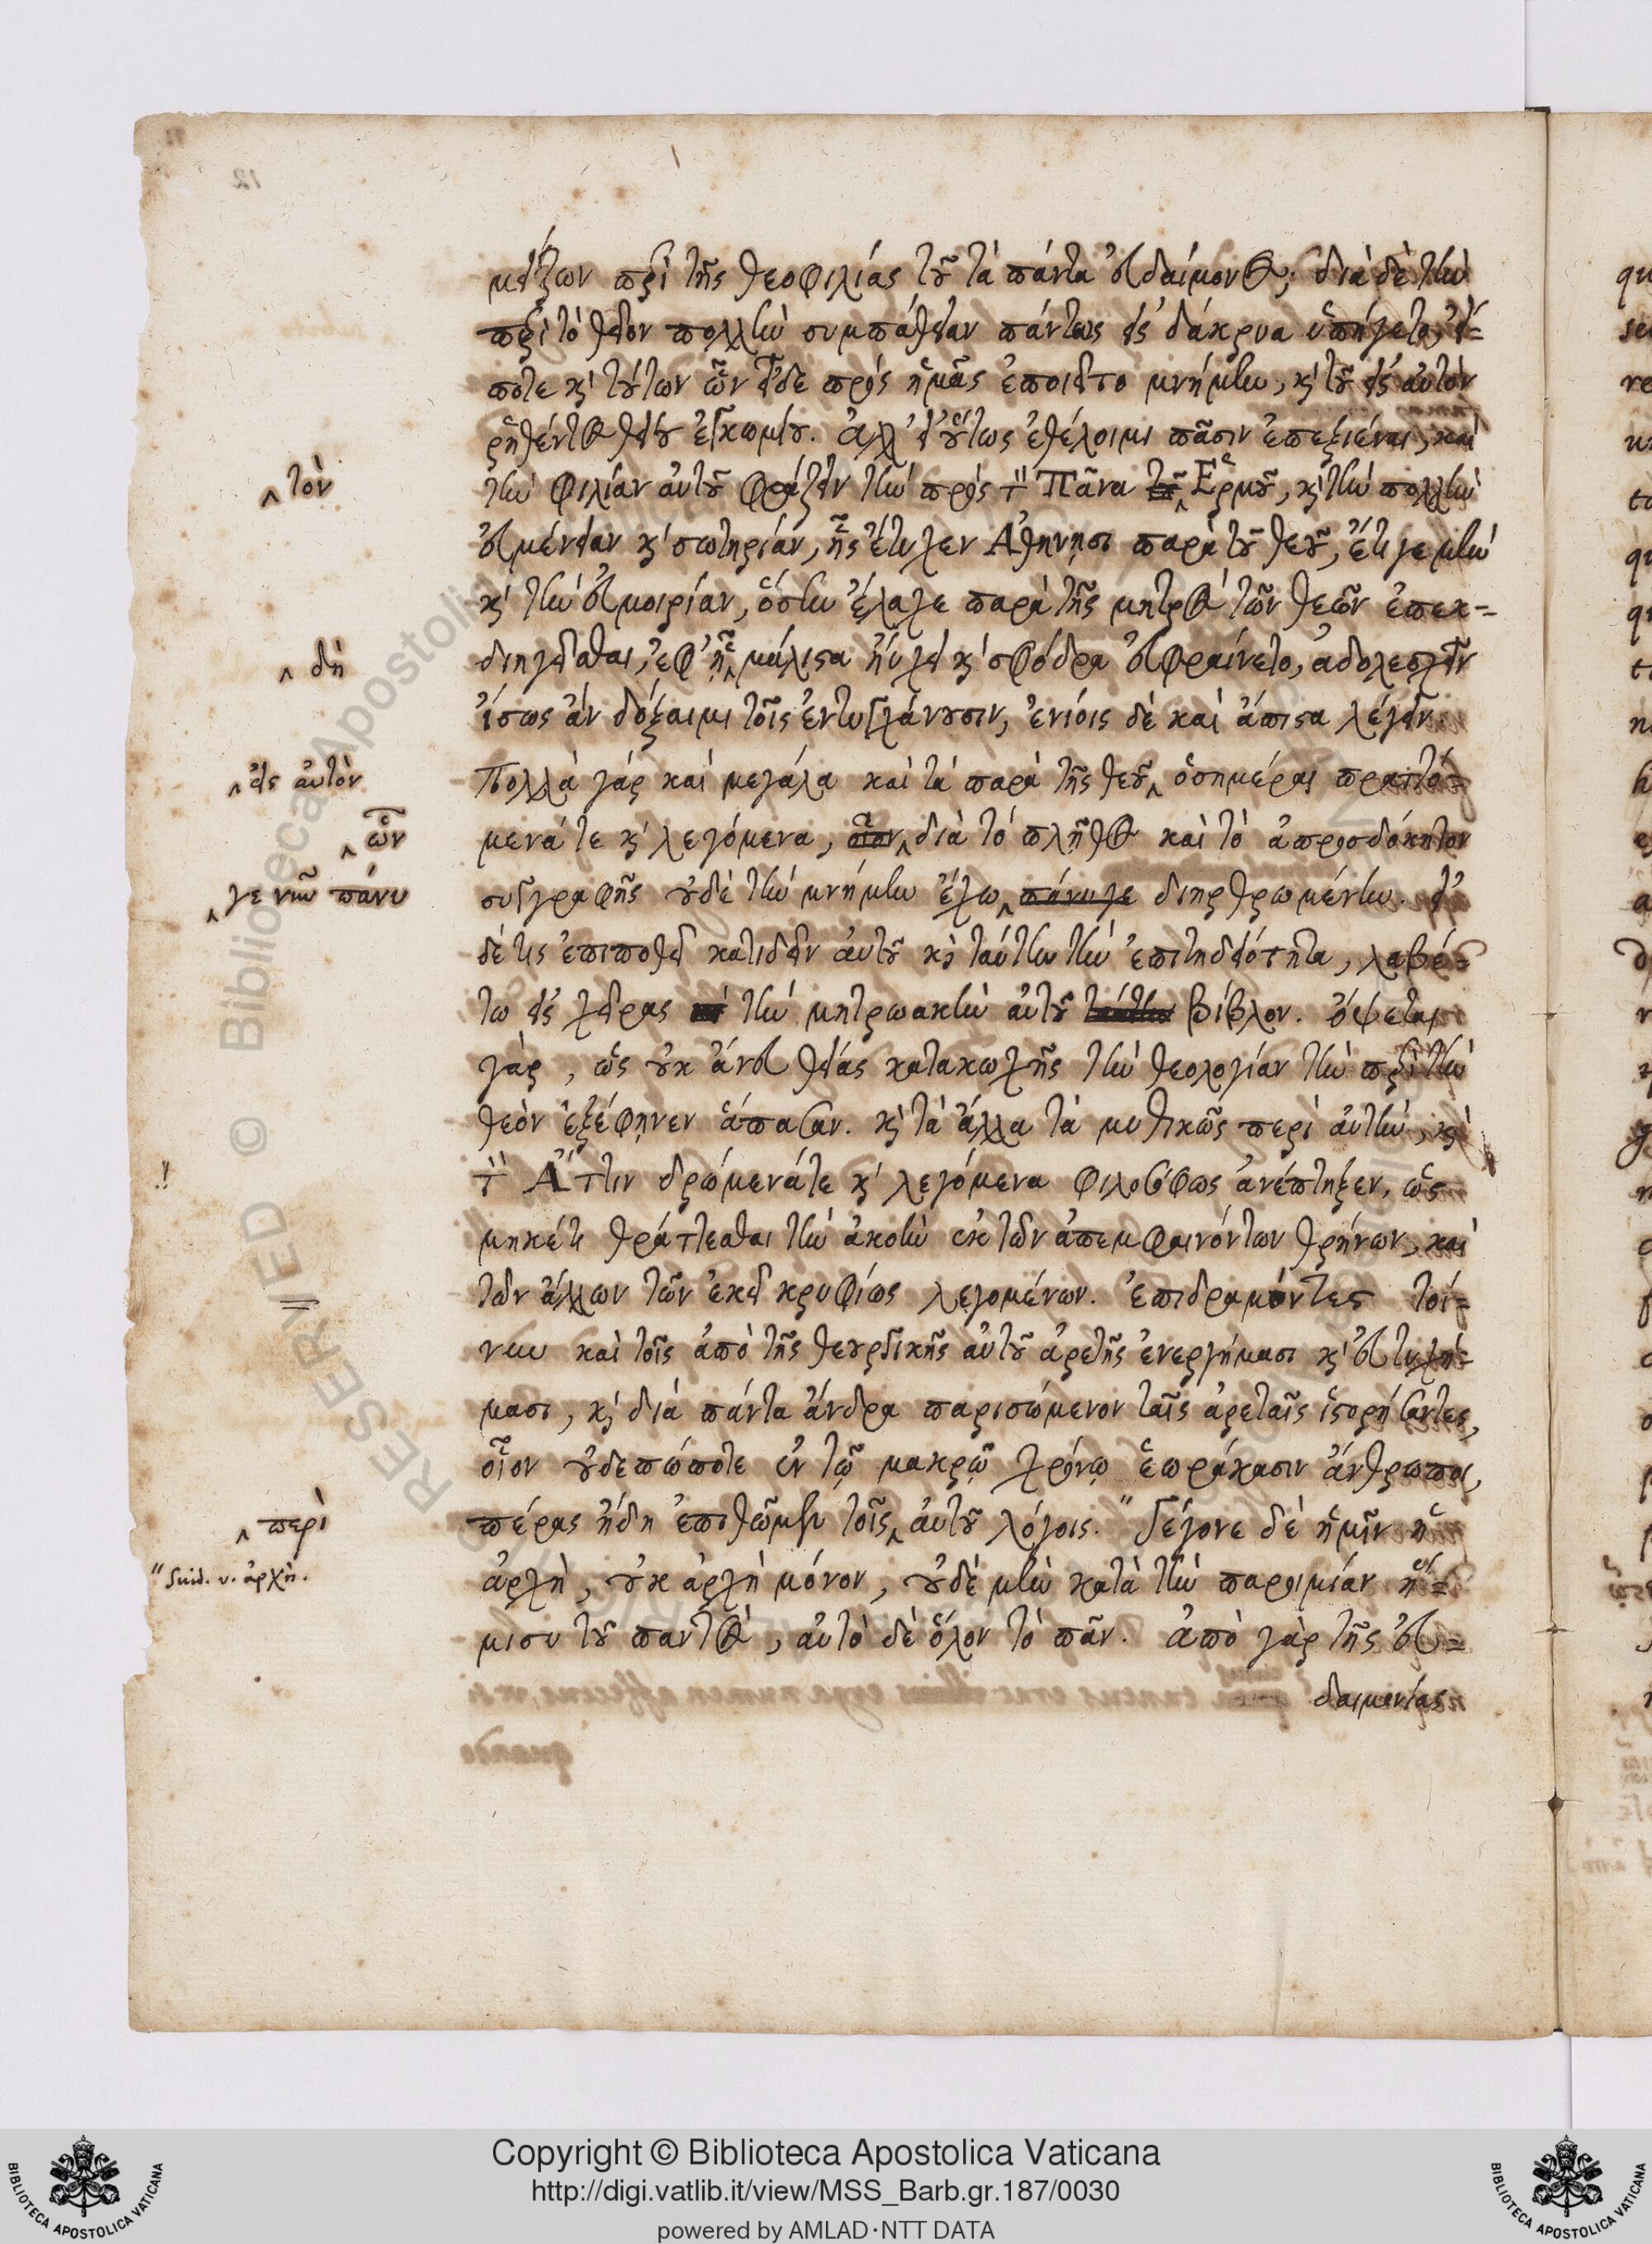 μείζων περὶ τῆς θεοφιλίας τοῦ τὰ πάντα εὐδαίμονος; διὰ δὲ τὴν
περὶ τὸ θεῖον πολλὴν συμπάθειαν πάντως εἰς δάκρυα ὑπήγετο, εἴ=
ποτε καὶ τούτων ὧν εἶδε πρὸς ἡμᾶς ἐποιεῖτο μνήμην, καὶ τοῦ εἰς αὐτὸν
ῥηθέντος θείου ἐγκωμίου. ἀλλ' εἰ οὕτως ἐθέλοιμι πᾶσιν ἐπεξιέναι, καὶ
^ τὸν
τὴν φιλίαν αὐτοῦ φράζειν τὴν πρὸς τὸν Πᾶνα τοῦ ^ Ἑρμοῦ, καὶ τὴν πολλὴν
εὐμένειαν καὶ σωτηρίαν, ἧς ἔτυχεν Ἀθήνησι παρὰ τοῦ θεοῦ, ἔτι γε μὴν
καὶ τὴν εὐμοιρίαν, ὅστιν ἔλαχε παρὰ τῆς μητρὸς τῶν θεῶν ἐπεκ=
^ δὴ
διηγεῖσθαι, ἐφ' ᾗ ^ μάλιστα ηὔχει καὶ σφόδρα εὐφραίνετο, ἀδολεσχεῖν
ἴσως ἂν δόξαιμι τοῖς ἐντυγχάνουσιν, ἐνίοις δὲ καὶ ἄπιστα λέγειν.
^ εἰς αὐτὸν
Πολλὰ γὰρ καὶ μεγάλα καὶ τὰ παρὰ τῆς θεοῦ ^ ὁσημέραι πραττό=
^ ὧν
μενά τε καὶ λεγόμενα, ^ διὰ τὸ πλῆθος καὶ τὸ ἀπροσδόκητον
^ γε νῦν πάνυ
συγγραφῆς οὐδὲ τὴν μνήμην ἔχω ^ πάνυ γε διηρθρωμένην. εἰ
δέ τις ἐπιποθεῖ κατιδεῖν αὐτοῦ καὶ ταύτην τὴν ἐπιτηδειότητα, λαβέ=
τω εἰς χεῖρας τὴν μητρωακὴν αὐτοῦ ταύτην βίβλον. ὄψεται
γὰρ, ὡς οὐκ ἄνευ θείας κατακωχῆς τὴν θεολογίαν τὴν περὶ τὴν
θεὸν ἐξέφηνεν ἅπασαν. καὶ τὰ ἄλλα τὰ μυθικῶς περὶ αὐτὴν, καὶ
.!
τὸν Ἄττιν δρώμενά τε καὶ λεγόμενα φιλοσόφως ἀνέπτηξεν, ὡς
μηκέτι θράττεσθαι τὴν ἀκοὴν ἐκ τῶν ἀπεμφαινόντων θρήνων, καὶ
τῶν ἄλλων τῶν ἐκεῖ κρυφίως λεγομένων. ἐπιδραμόντες τοί=
νυν καὶ τοῖς ἀπὸ τῆς θεουργικῆς αὐτοῦ ἀρετῆς ἐνεργήμασι καὶ εὐτυχή=
μασι, καὶ διὰ πάντα ἄνδρα παρισώμενον ταῖς ἀρεταῖς ἱστορήσαντες,
οἷον οὐδεπώποτε ἐν τῷ μακρῷ χρόνῳ ἑωράκασιν ἄνθρωποι,
^ περὶ
πέρας ἤδη ἐπιθῶμεν τοῖς ^ αὐτοῦ λόγοις. " Γέγονε δὲ ἡμῖν ἡ
" Suid. v. ἀρχή.
ἀρχὴ, οὐκ ἀρχὴ μόνον, οὐδὲ μὴν κατὰ τὴν παροιμίαν ἥ=
μισυ τοῦ παντὸς, αὐτὸ δὲ ὅλον τὸ πᾶν. ἀπὸ γὰρ τῆς εὐ=
δαιμονίας
Copyright © Biblioteca Apostolica Vaticana
http://digi.vatlib.it/view/MSS_Barb.gr.187/0030
powered by AMLAD·NTT DATA